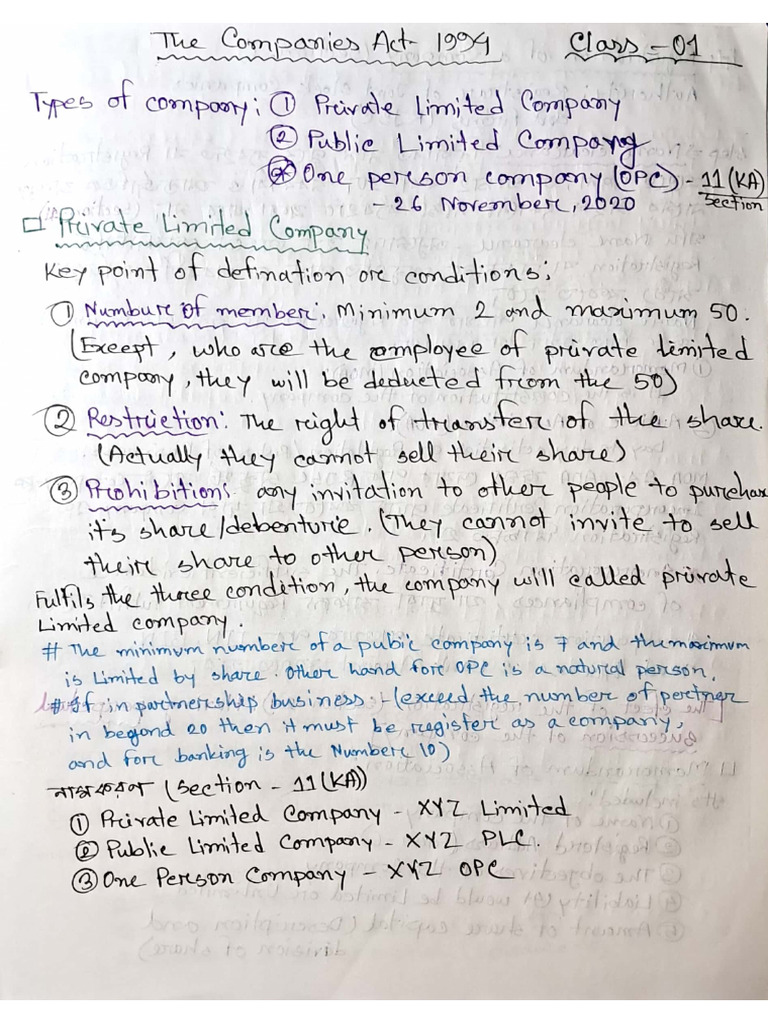 The Companies Act- 1994 Class-01
Types of company: ① Private Limited Company
② Public Limited Company
③ One person company (OPC) - 11 (KA)
section
- 26 November, 2020
□ Private Limited Company
Key point of defination or conditions:
① Numbure of member: Minimum 2 and maximum 50.
(Except, who are the employee of private limited
company, they will be deducted from the 50)
② Restriction: The right of transfer of the share.
(Actually they cannot sell their share)
③ Prohibition: any invitation to other people to purchas
it's share/debenture. (They cannot invite to sell
their share to other person)
Fulfils the three condition, the company will called private
Limited company.
# The minimum number of a pubic company is 7 and the maximum
is Limited by share. Other hand for OPC is a natural person.
# If in partnership business :- (exceed the number of pertner
in begond 20 then it must be register as a company,
and for banking is the Number 10)
নামকরণ (Section - 11 (KA))
① Private Limited Company - XYZ Limited
② Public Limited Company - XYZ PLC.
③ One Person Company - XYZ OPC